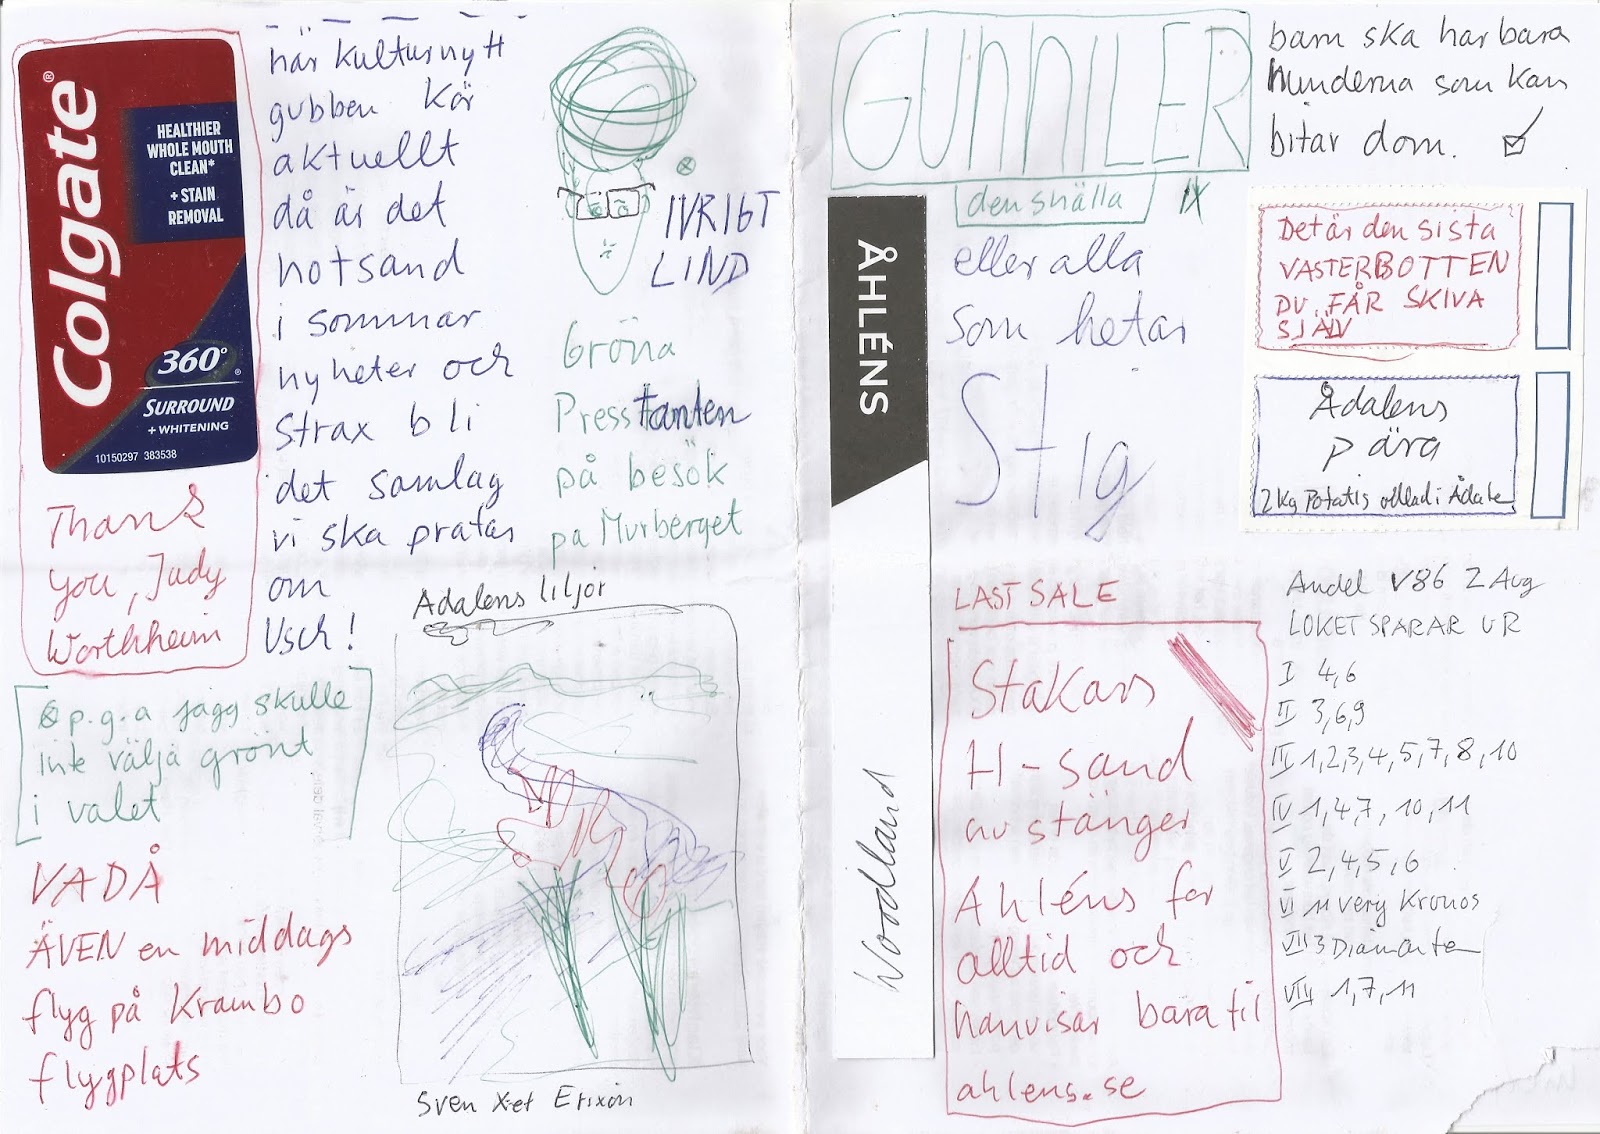 Colgate®
HEALTHIER
WHOLE MOUTH
CLEAN*
+ STAIN
REMOVAL
360°®
SURROUND
+ WHITENING
10150297 383538
Thank
you, Judy
Worthheim
när kulturnytt
gubben kör
aktuellt
då är det
hotsand
i sommar
nyheter och
strax bli
det samlag
vi ska pratas
om
Usch!
IVRIGT
LIND
Gröna
Press tanten
på besök
pa Murberget
p.g.a jagg skulle
inte välja grönt
i valet
VADÅ
ÄVEN en middags
flyg på Krambo
flygplats
Adalens liljor
Sven X-et Erixon
GUNNILER
den snälla IX
eller alla
som hetar
Stig
ÅHLÉNS
Woodland
LAST SALE
Stakars
H-sand
av stänger
Ahléns for
alltid och
hanvisar bara til
ahlens.se
barn ska har bara
hunderna som kan
bitar dom.
Det är den sista
VASTERBOTTEN
DU FÅR SKIVA
SJÄLV
Ådalens
pära
2 kg Potatis odlad i Ådale
Andel V86 2 Aug
LOKET SPARAR UR
I 4,6
II 3,6,9
III 1,2,3,4,5,7,8,10
IV 1,4,7,10,11
V 2,4,5,6
VI 11 very Kronos
VII 3 Diamanten
VIII 1,7,11